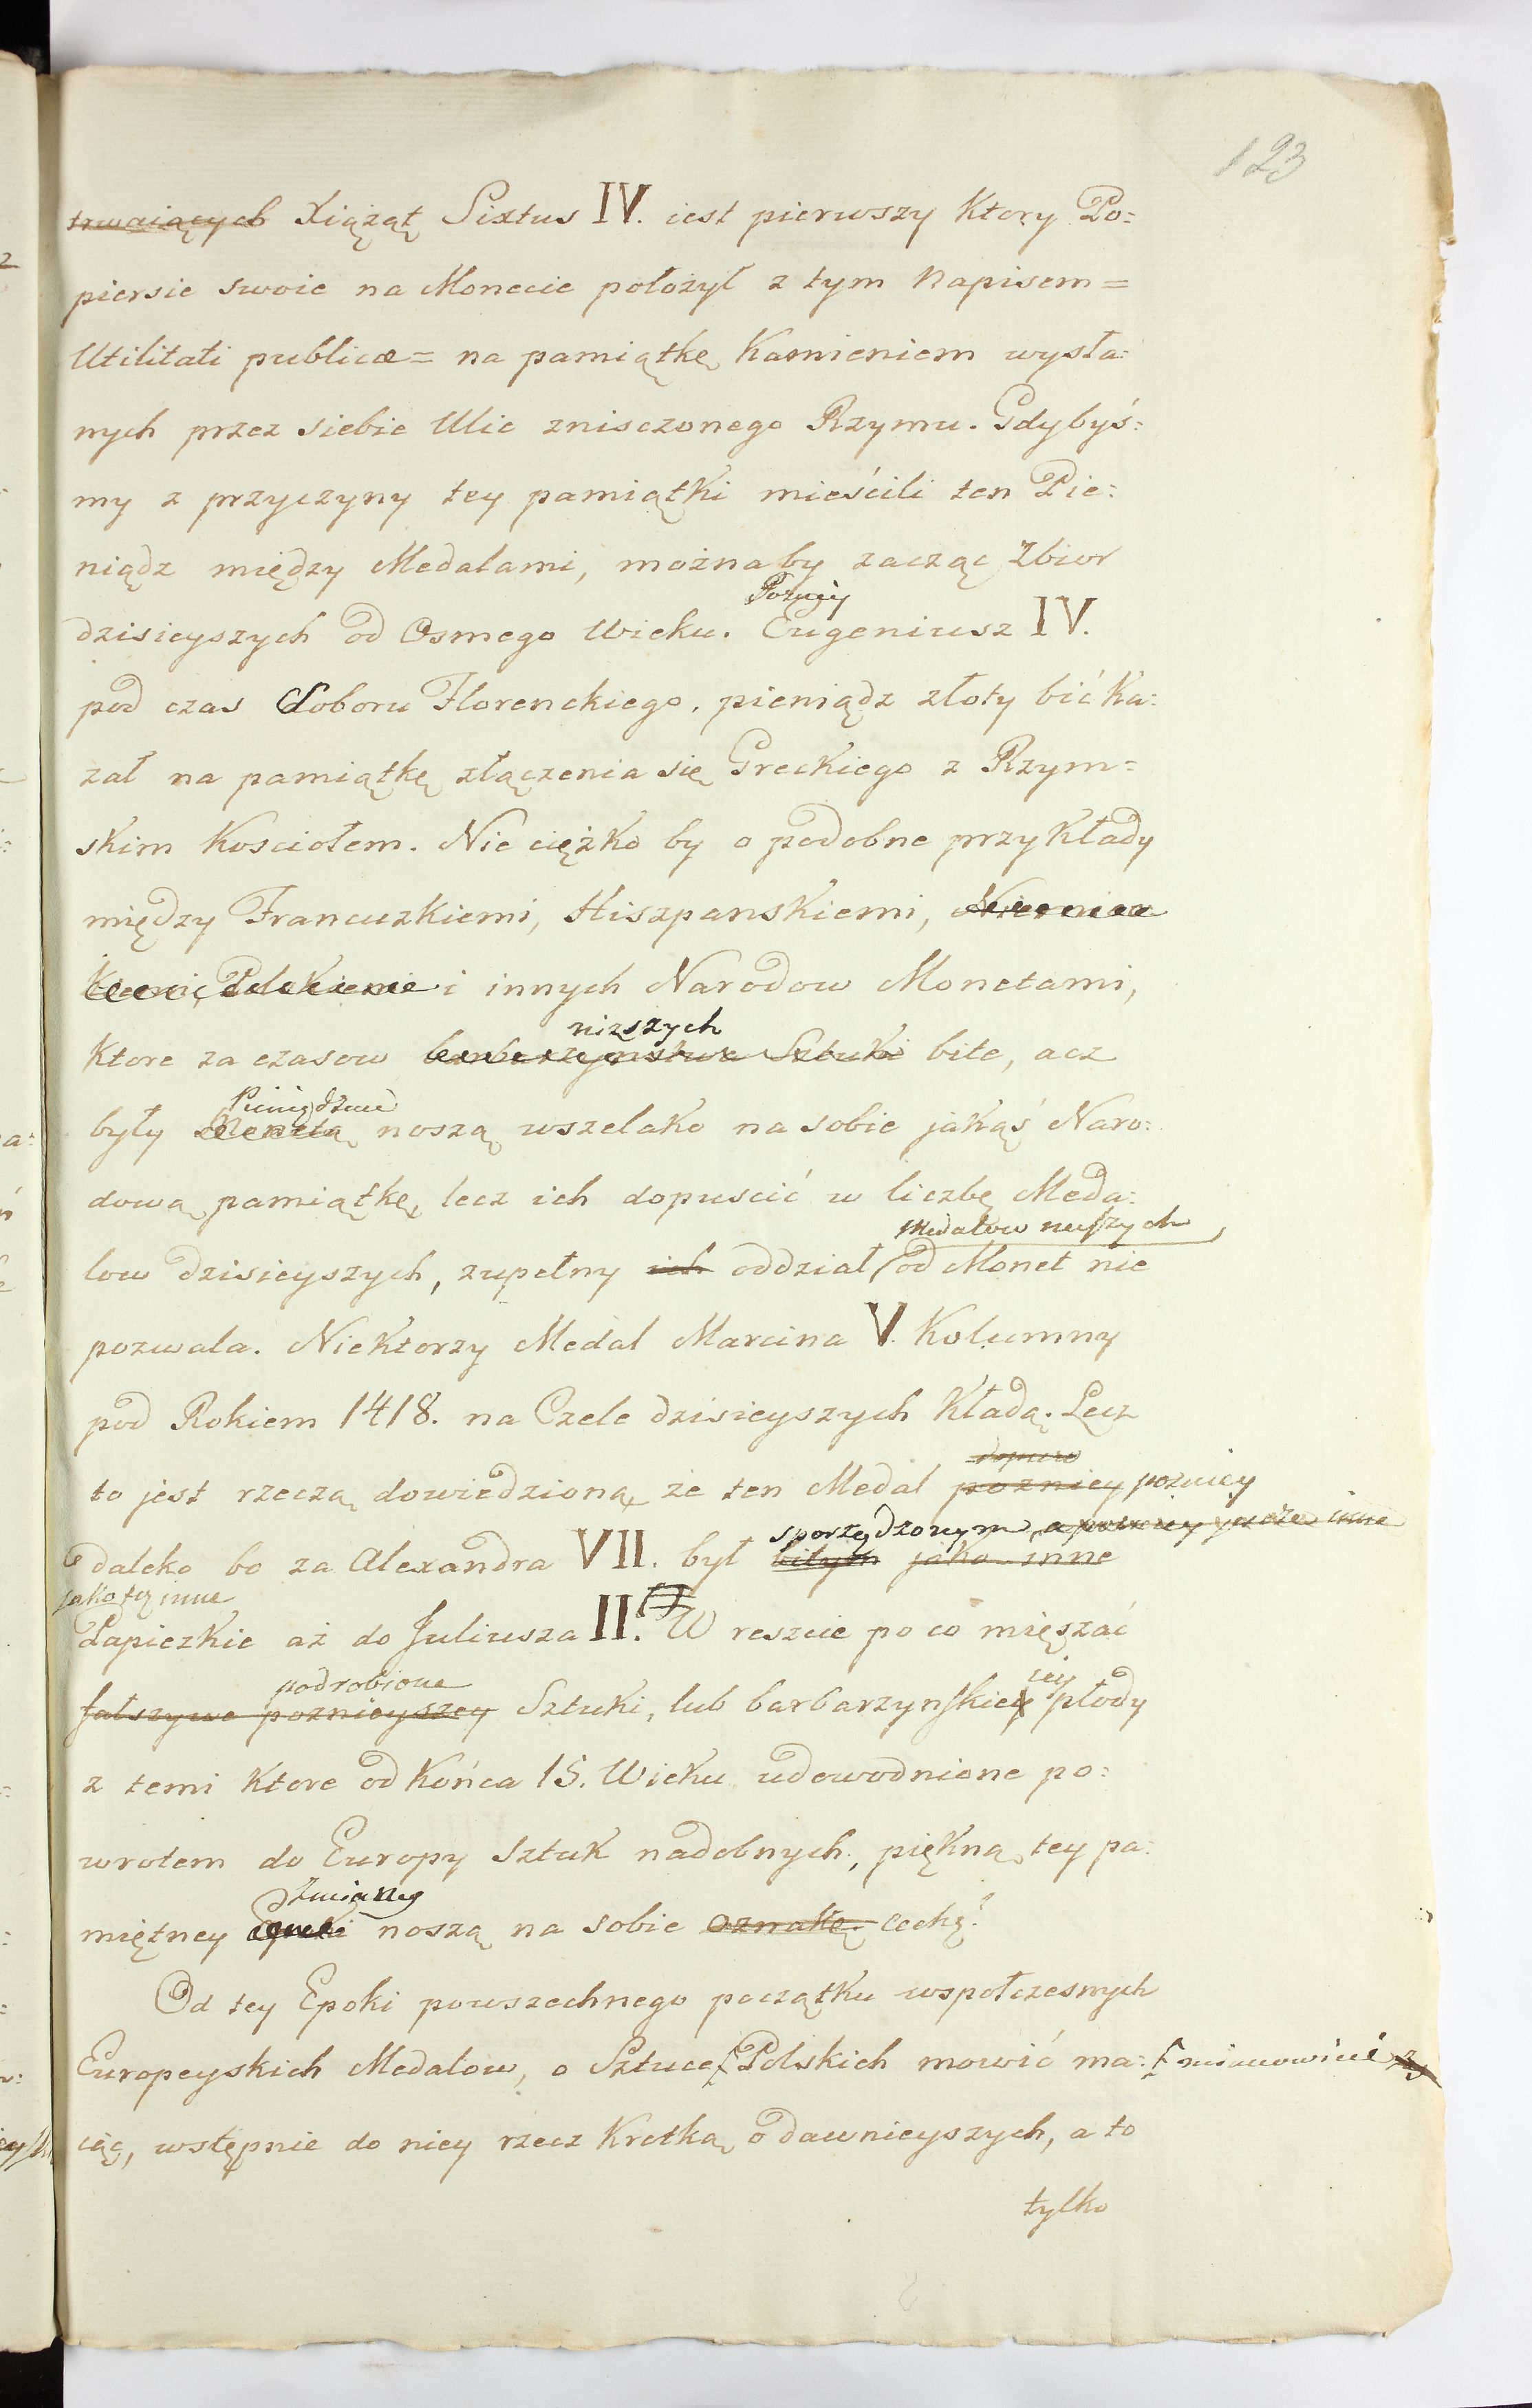 123
trwaiących Xiążąt Sixtus IV. iest pierwszy Ktory Po=
piersie swoie na Monecie położył z tym Napisem=
Utilitati publicæ= na pamiątkę Kamieniem wysła=
nych przez siebie Ulic znisczonego Rzymu. Gdybyś=
my z przyczyny tey pamiątki mieścili ten Pie=
niądz między Medalami, można by zacząc Zbior
Pozniey
dzisieyszych od Osmego Wieku. Eugeniusz IV.
pod czas Soboru Florenckiego, pieniądz złoty bić Ka=
zał na pamiątkę złączenia się Greckiego z Rzym=
skim Kosciołem. Nie ciężko by o podobne przykłady
między Francuzkiemi, Hiszpanskiemi, Niemiec
kiemi, Polskiemi i innych Narodow Monetami,
nizszych
Ktore za czasow barbarzynstwa Sztuki bite, acz
Pieniędzmi
były Monetą noszą wszelako na sobie jakąś Naro=
dową pamiątkę, lecz ich dopuscić w liczbę Meda=
Medalow naszych
low dzisieyszych, zupełny ich oddział od Monet nie
pozwala. Niektorzy Medal Marcina V. Kolumny
pod Rokiem 1418. na Czele dzisieyszych Kładą. Lecz
dopiero
to jest rzeczą dowiedzioną, że ten Medal pozniey pozniey
sporządzonym, a
daleko bo za Alexandra VII. był bitym jako inne
jako też inne
Papiezkie aż do Juliusza II. W reszcie po co mięszać
podrobione
fałszywe poznieyszey Sztuki, lub barbarzynskiey płody
z temi Ktore od Końca 15. Wieku udowodnione po=
wrotem do Europy Sztuk nadobnych, piękną tey pa=
Zmiany
miętney Epoki noszą na sobie oznakę cechę?
Od tey Epoki powszechnego początku wspołczesnych
Europeyskich Medalow, o Sztuce Polskich mowić ma= mianowicie
iąc, wstępnie do niey rzecz Krotką o dawnieyszych, a to
tylko